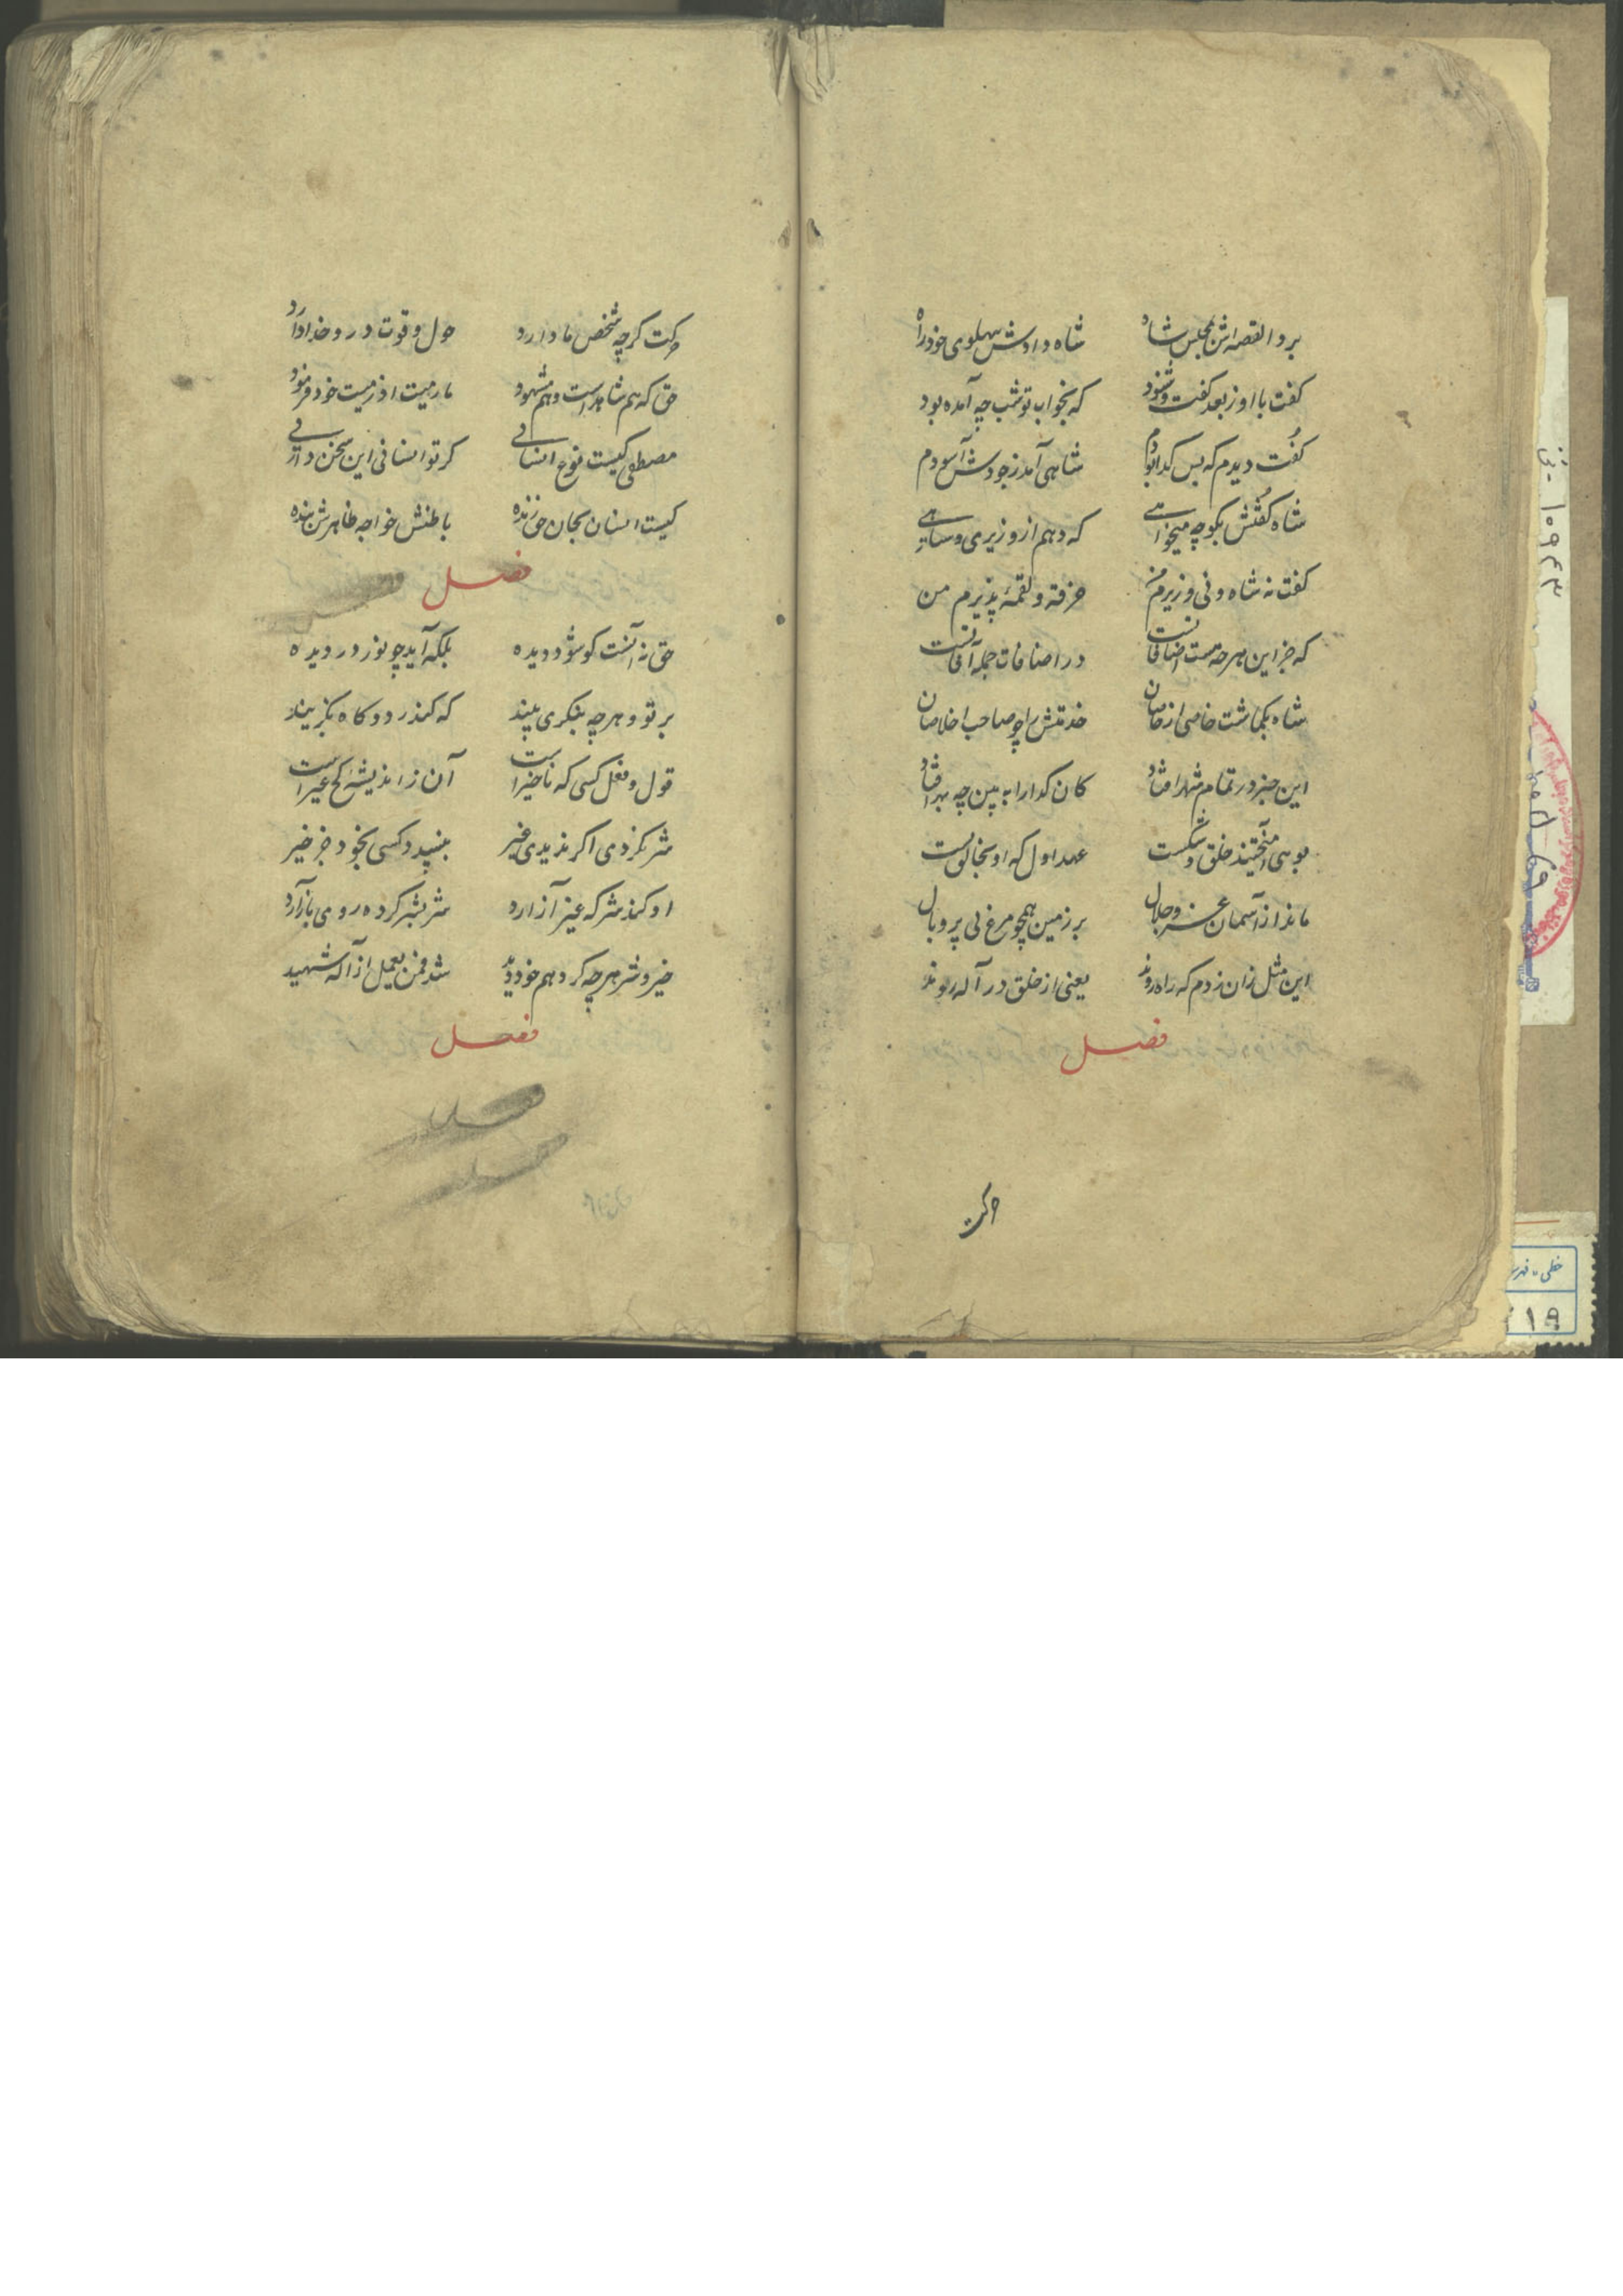 برد القصه اش بمجلس شاه شاه دادش بپهلوی خود راه
کفت با او ز بعد کفت و شنود که بخواب تو شب چه آمده بود
کفت دیدم که بس کدا بودم شاهی آمد ز جودش آسودم
شاه کفتش بکو چه میخواهی که دهم از وزیری و شاهی
کفت نه شاه و نی وزیرم من خرقه و لقمهٔ پذیرم من
که جز این هر چه هست اضافاتست در اضافات جمله آفاتست
شاه بکماشت خاصی از خاصان خدمتش را چو صاحب اخلاصان
این خبر در تمام شهر افتاد کان کدا را ببین چه بهر افتاد
بوهی آمیختند خلق و شکست عهد اول که او بخالق بست
ماند از آسمان عز و جلال بر زمین همچو مرغ بی پر و بال
این مثل زان زدم که راه روند یعنی از خلق در آله روند
فصل
حرکت
حرکت کرچه شخص ما دارد حول و قوت درو خدا دارد
حق که هم شاهدست و هم مشهود ما رمیت اذ رمیت خود فرمود
مصطفی کیست نوح انسانی کر تو انسانی این سخن دانی
کیست انسان بجان حق زنده باطنش خواجه ظاهرش بنده
فصل
حق نه آنست کو شود دیده بلکه آید چو نور در دیده
بر تو و هر چه بنکری بیند که کند رد و کاه بکزیند
قول و فعل کسی که ناخیر است آن ز اندیشهٔ کج غیر است
شر نکردی اکر ندیدی غیر نپسندد کسی بخود جز خیر
او کند شر که غیر آزارد شر بشر کرده روی باز آرد
خیر و شر هر چه کرد هم خود دید شد فمن یعمل از آله شهید
فصل
۱۰۹۴۳
خطی - فهرست